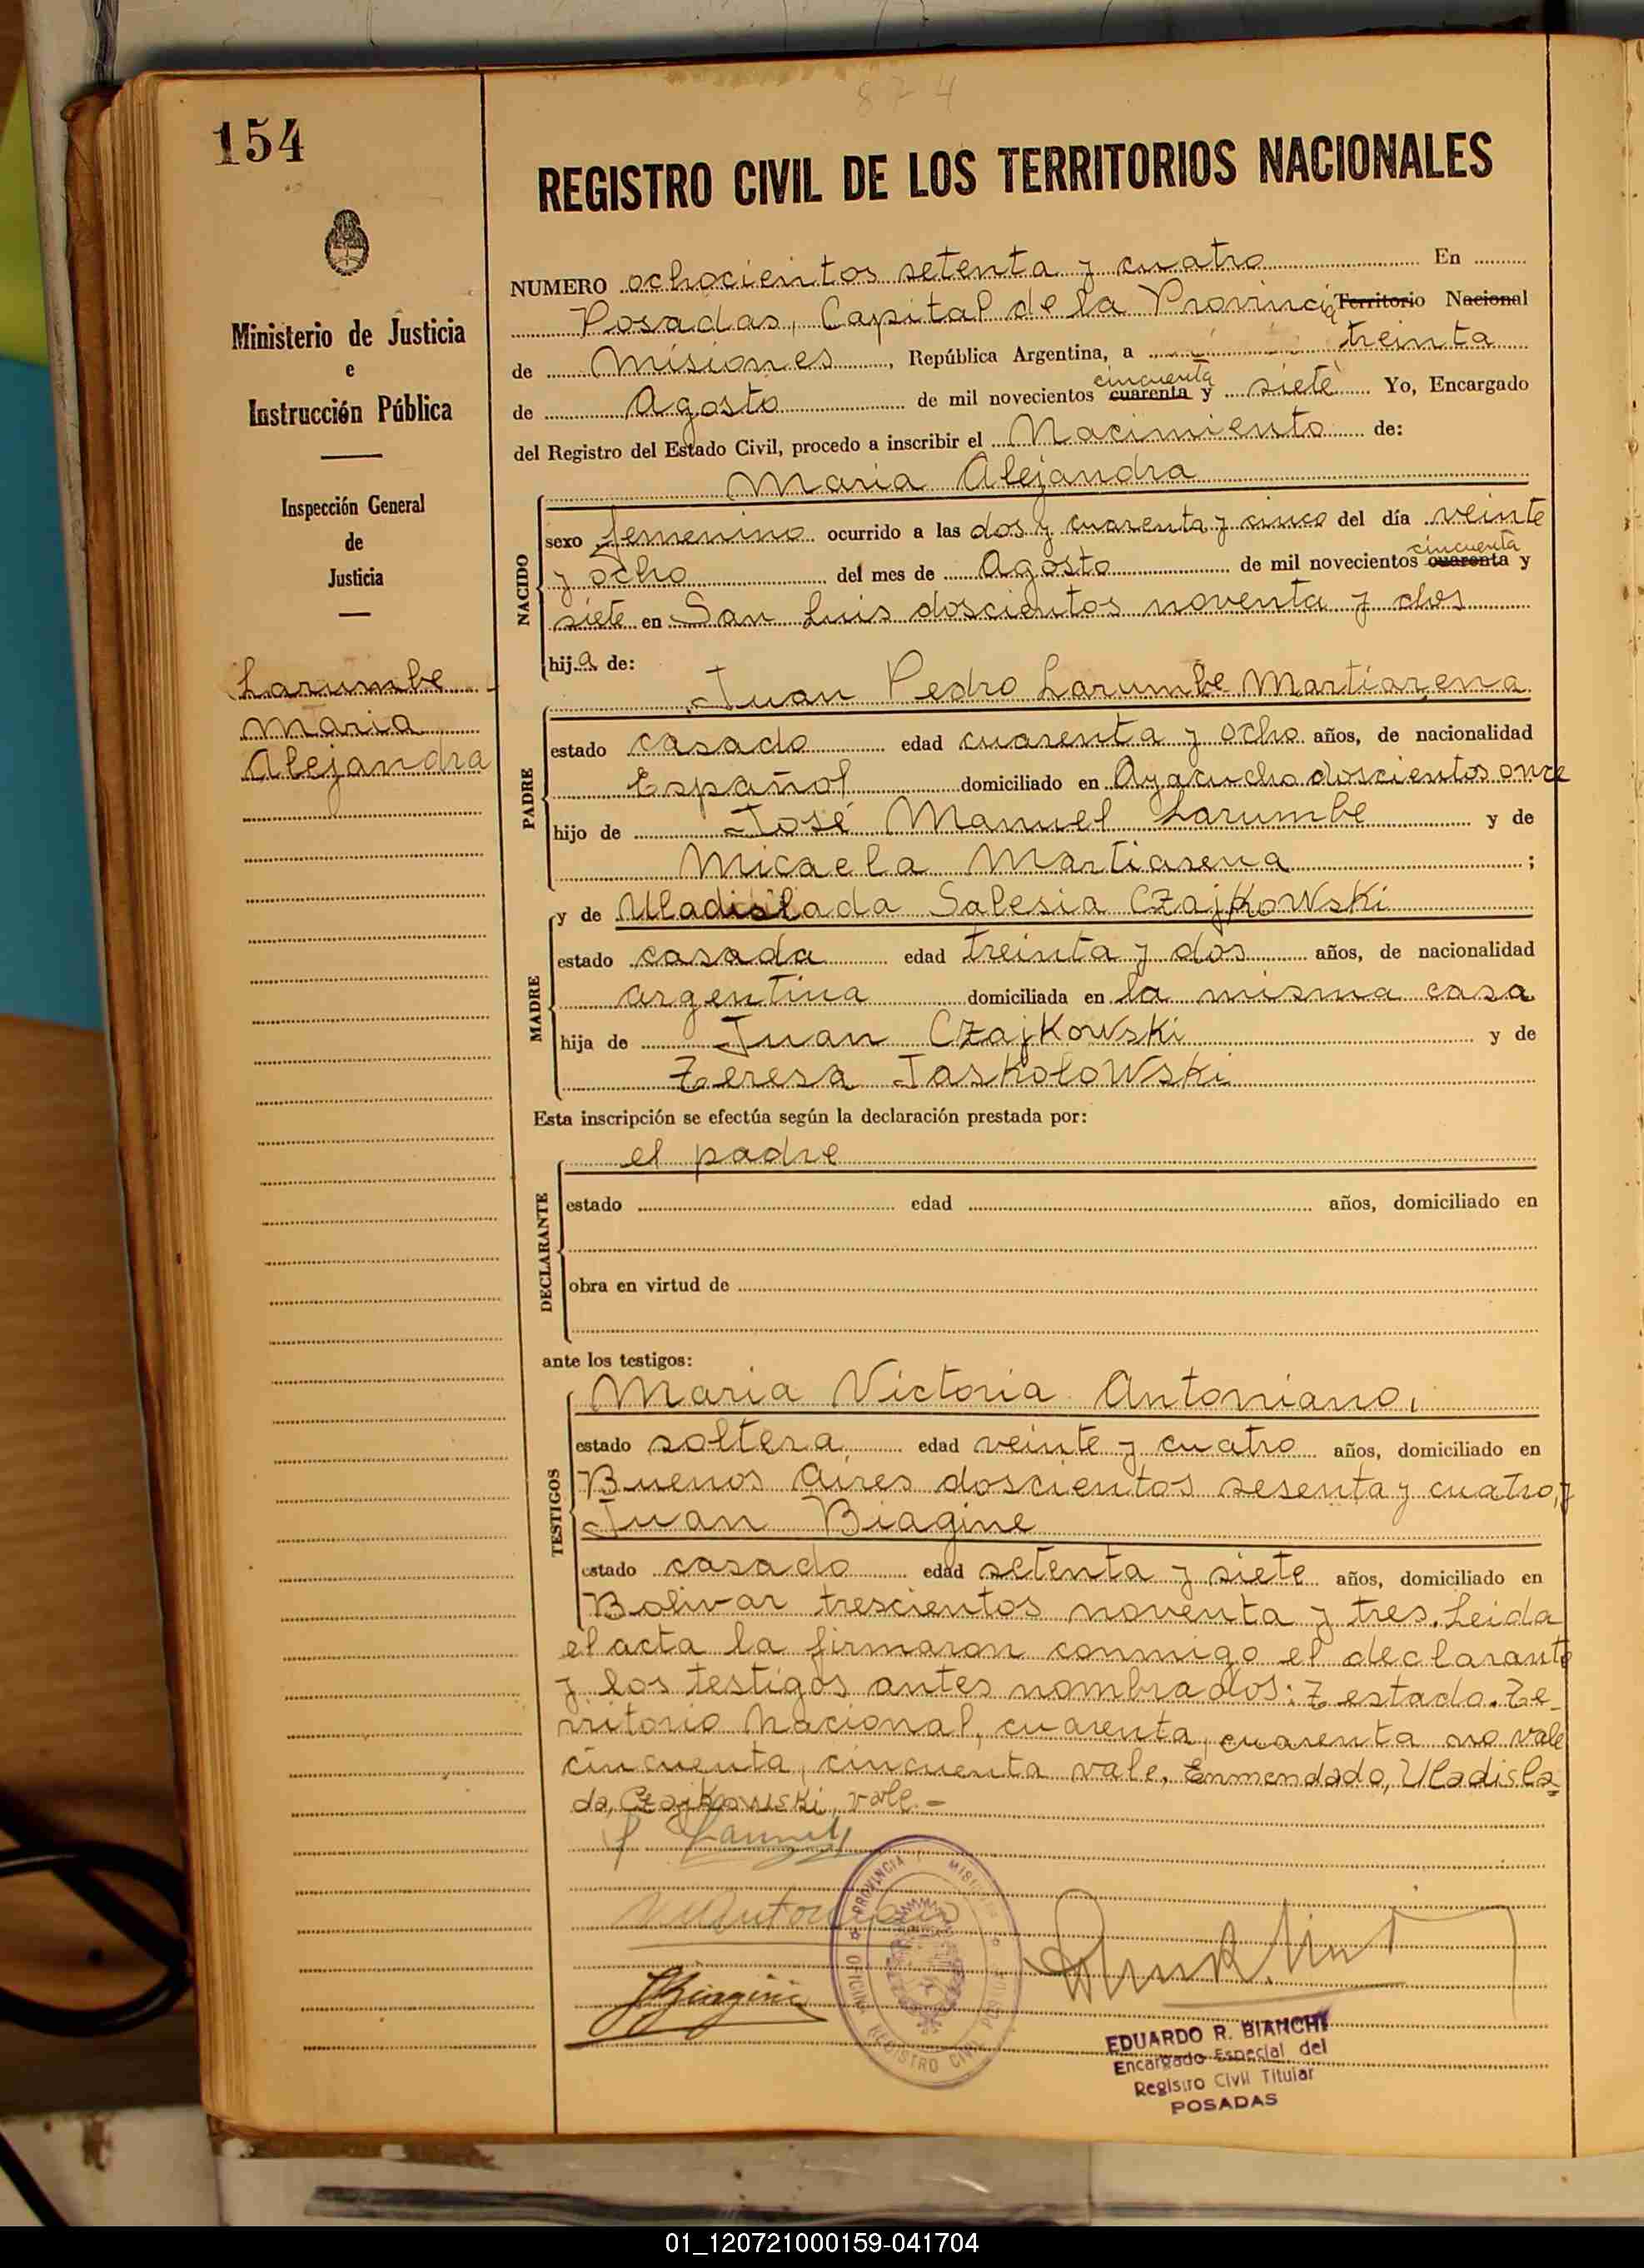 874
154
REGISTRO CIVIL DE LOS TERRITORIOS NACIONALES
Ministerio de Justicia
e
Instrucción Pública
Inspección General
de
Justicia
Larumbe
Maria
Alejandra
NUMERO ochocientos setenta y cuatro En
Posadas, Capital de la Provincia Territorio Nacional
de Misiones, República Argentina, a treinta
cincuenta
de Agosto de mil novecientos cuarenta y siete Yo, Encargado
del Registro del Estado Civil, procedo a inscribir el Nacimiento de:
Maria Alejandra
NACIDO
sexo femenino ocurrido a las dos y cuarenta y cinco del día veinte
cincuenta
y ocho del mes de Agosto de mil novecientos cuarenta y
siete en San Luis doscientos noventa y dos
hija de:
Juan Pedro Larumbe Martiarena
PADRE
estado casado edad cuarenta y ocho años, de nacionalidad
Español domiciliado en Ayacucho doscientos once
hijo de José Manuel Larumbe y de
Micaela Martiarena ;
y de Uladislada Salesia Czajkowski
MADRE
estado casada edad treinta y dos años, de nacionalidad
argentina domiciliada en la misma casa
hija de Juan Czajkowski y de
Teresa Jaskolowski
Esta inscripción se efectúa según la declaración prestada por:
el padre
DECLARANTE
estado edad años, domiciliado en
obra en virtud de
ante los testigos:
Maria Victoria Antoniano,
TESTIGOS
estado soltera edad veinte y cuatro años, domiciliado en
Buenos Aires doscientos sesenta y cuatro, y
Juan Biagine
estado casado edad setenta y siete años, domiciliado en
Bolivar trescientos noventa y tres. Leida
el acta la firmaron conmigo el declarante
y los testigos antes nombrados: Testado. Te-
rritorio Nacional, cuarenta, cuarenta no vale
cincuenta, cincuenta vale. Enmendado, Uladisla-
da, Czajkowski, vale.-
PROVINCIA MISIONES
OFICINA REGISTRO CIVIL
J Biagini
EDUARDO R. BIANCHI
Encargado Especial del
Registro Civil Titular
POSADAS
01_120721000159-041704